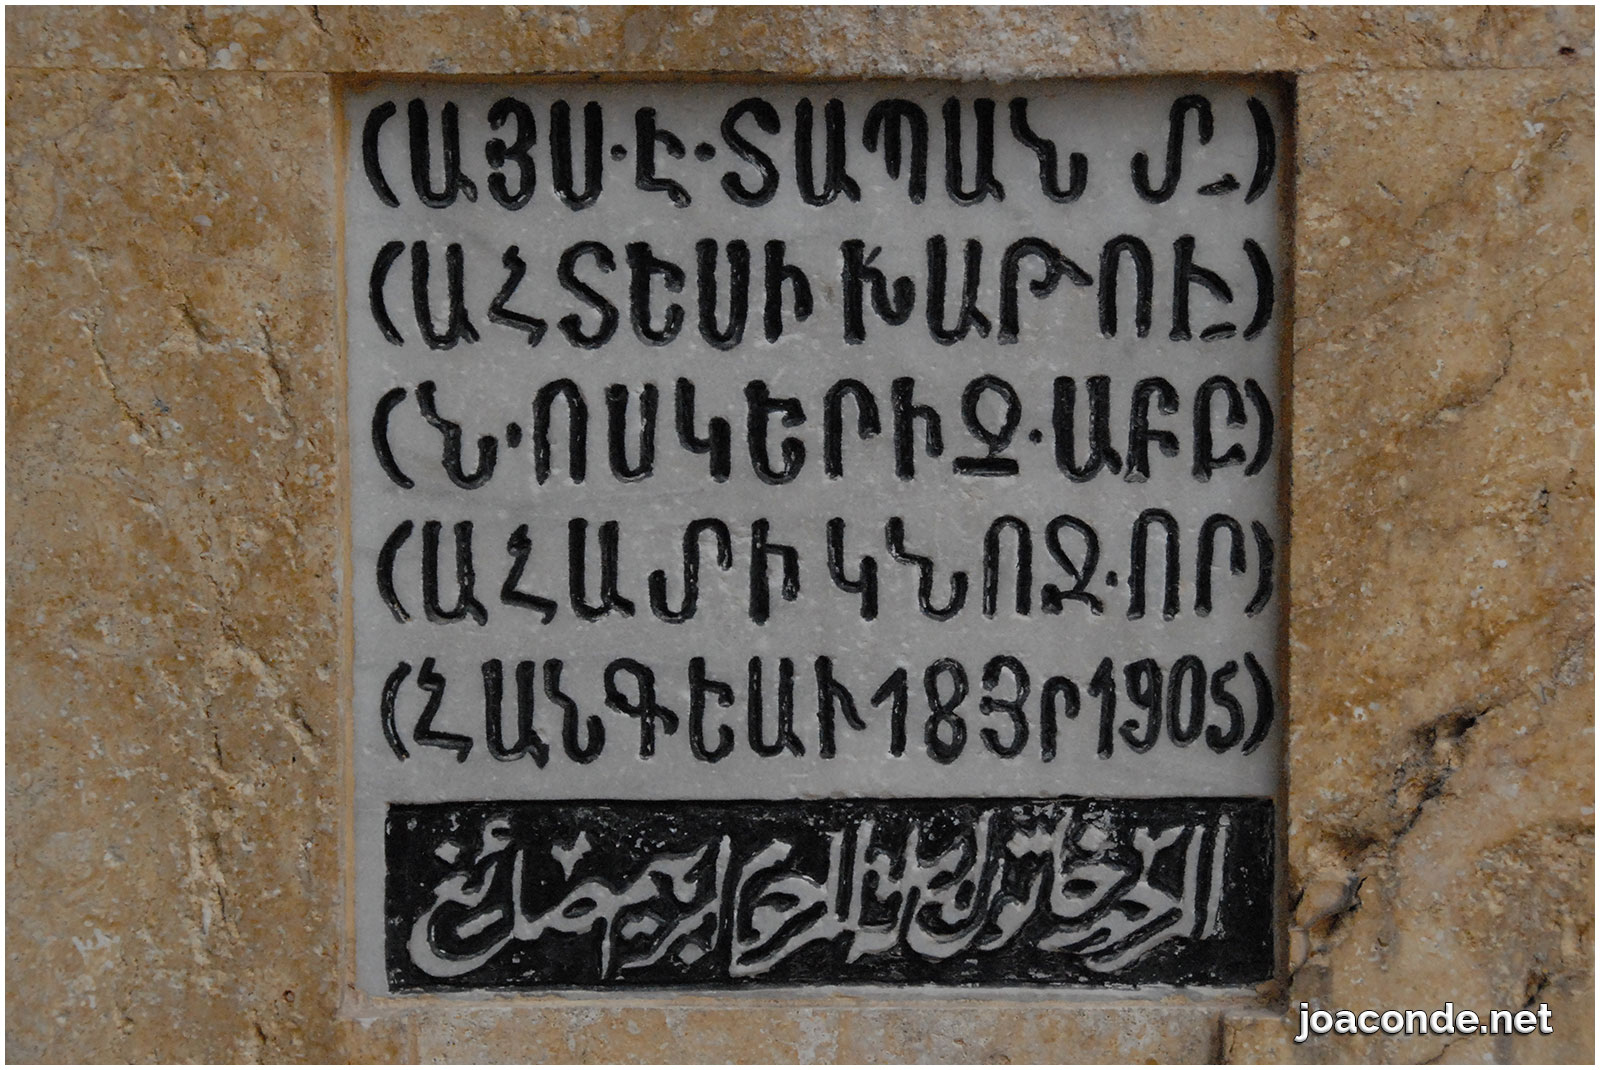 (ԱՅՍ·Է·ՏԱՊԱՆ Մ֊)
(ԱՀՏԵՍԻ ԽԱԹՈՒ֊)
(Ն·ՈՍԿԵՐԻՉ·ԱԲԸ)
(ԱՀԱՄԻ ԿՆՈՋ·ՈՐ)
(ՀԱՆԳԵԱՒ 18 ՅՐ 1905)
joaconde.net